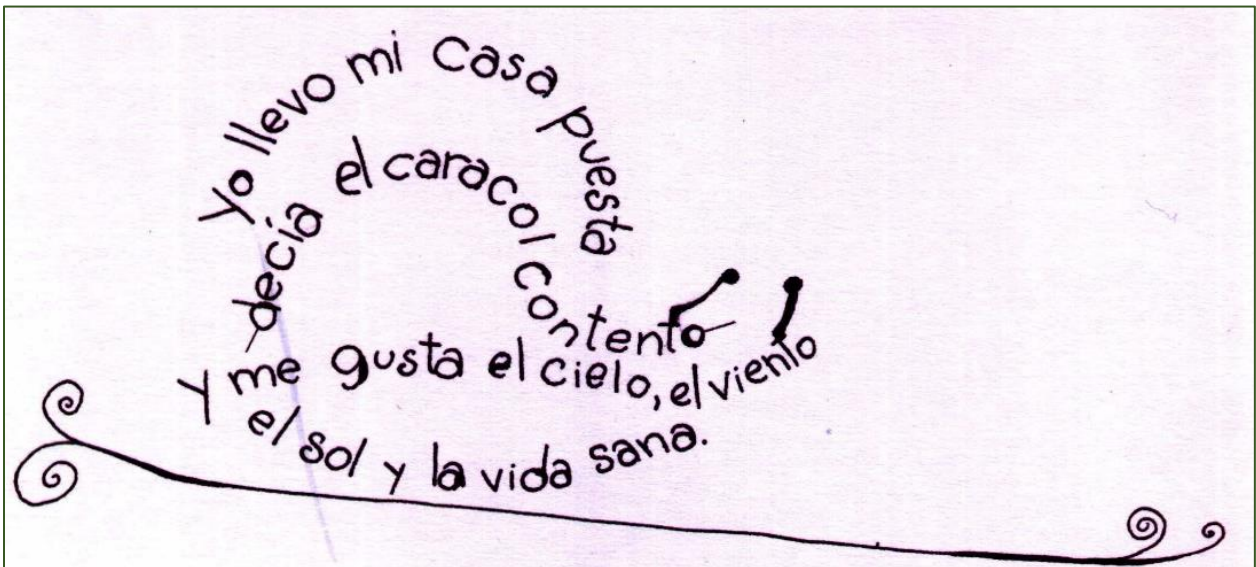 Yo llevo mi casa puesta
- decía el caracol contento -
Y me gusta el cielo, el viento
el sol y la vida sana.